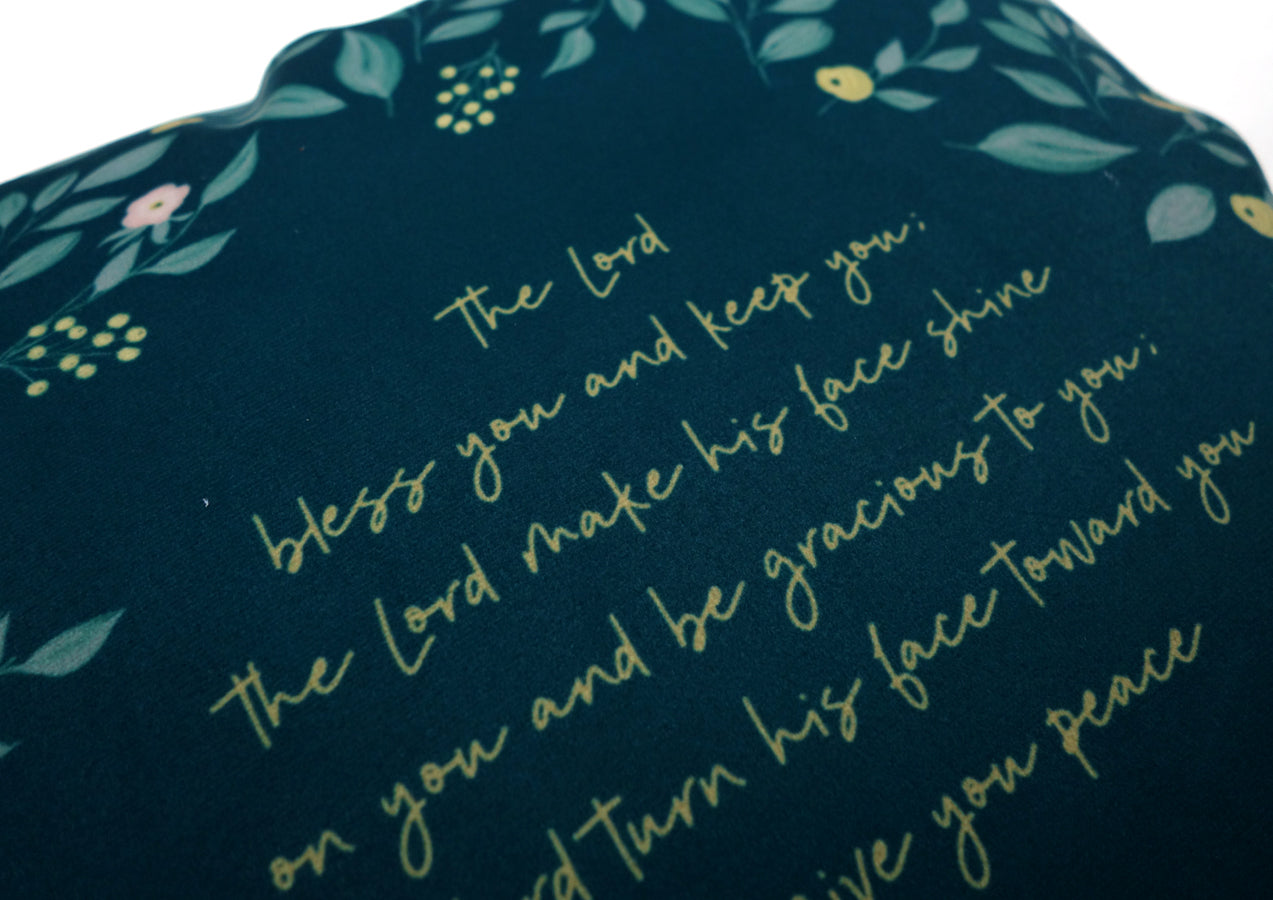 The Lord
bless you and keep you;
the Lord make his face shine
on you and be gracious to you;
turn his face toward you
you peace